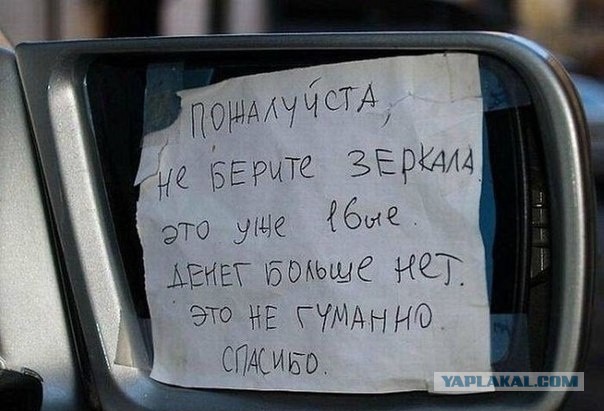 ПОЖАЛУЙСТА,
не БЕРИТЕ ЗЕРКАЛА.
ЭТО УЖЕ 16ые.
ДЕНЕГ БОЛЬШЕ НЕТ.
ЭТО НЕ ГУМАННО
СПАСИБО.
YAPLAKAL.COM